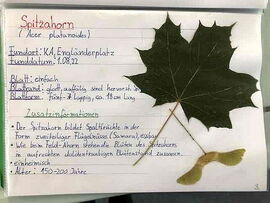 Spitzahorn
(Acer platanoides)
Fundort: KA, Engländerplatz
Funddatum: 1.08.22
Blatt: einfach
Blattrand: glatt, auffällig sind
Blattform: fünf- lappig, ca. 18 cm lang
Zusatzinformationen
• Der Spitzahorn bildet Spaltfrüchte in der
Form zweiteiliger Flügelnüsse (Samara), essbar
• Wie beim Feld-Ahorn stehen die Blüten des Spitzahorn
in aufrechten doldentraubigen Blütenstand zusammen.
• einheimisch
• Alter: 150-200 Jahre